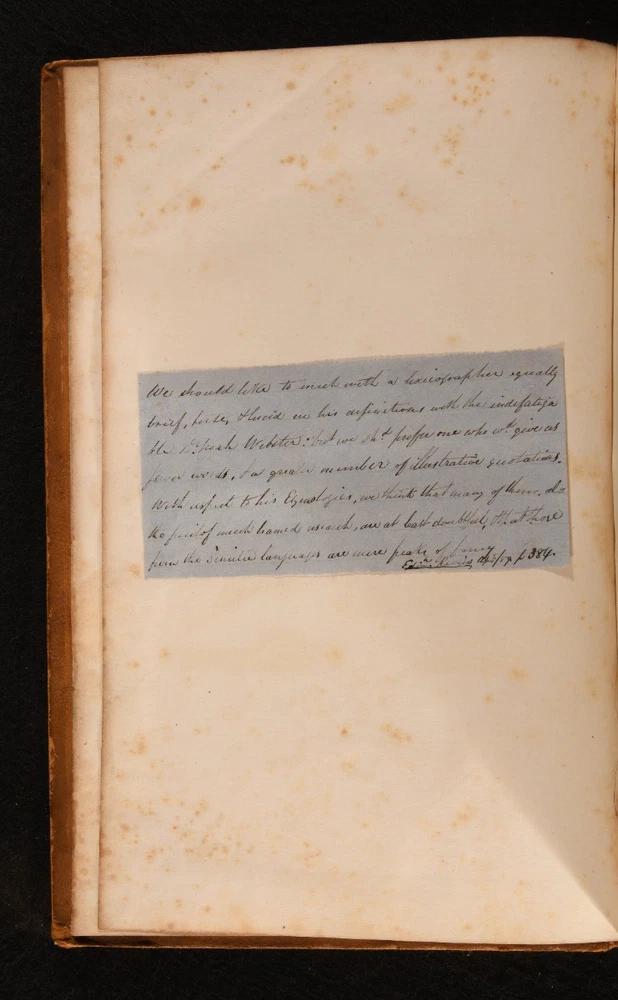 We should like to meet with a lexicographer equally
brief, terse, & lucid in his definitions with the indefatiga
ble Dr Noah Webster: but we shd prefer one who wd give us
fewer words, & a greater number of illustrative quotations.
With respect to his Etymologies, we think that many of them, tho
the fruit of much learned research, are at best doubtful, & that those
from the Semitic languages are mere freaks of fancy
Edinr Review, p 384.